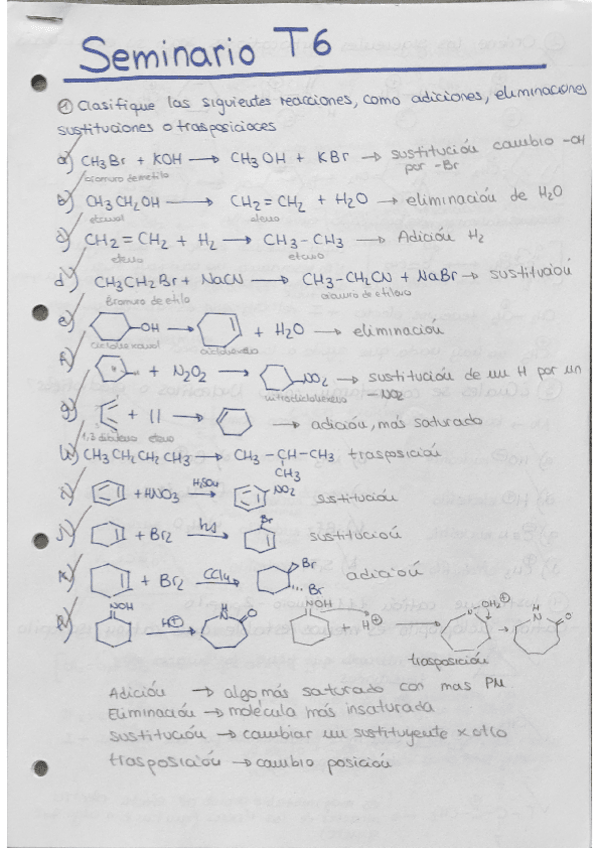 Seminario T6
① Clasifique las siguientes reacciones, como adiciones, eliminaciones
sustituciones o trasposiciones
a) CH3Br + KOH → CH3OH + KBr → sustitución cambio -OH
bromuro de metilo por -Br
b) CH3CH2OH → CH2=CH2 + H2O → eliminación de H2O
etanol eteno
c) CH2=CH2 + H2 → CH3-CH3 → Adición H2
eteno etano
d) CH3CH2Br + NaCN → CH3-CH2CN + NaBr → sustitución
Bromuro de etilo cianuro de etilo
e) OH → + H2O → eliminación
ciclohexanol ciclohexeno
f) + N2O2 → NO2 → sustitución de un H por un
-NO2
g) + || → → adición, más saturado
1,3 dibuteno eteno
h) CH3CH2CH2CH3 → CH3-CH-CH3 trasposición
CH3
i) + HNO3 H2SO4 → NO2 sustitución
j) + Br2 hν → Br sustitución
k) + Br2 CCl4 → Br Br adición
l) NOH H⊕ → N O NOH + H⊕ → N OH2⊕ → H N O
trasposición
Adición → algo más saturado con mas PM
Eliminación → molécula más insaturada
sustitución → cambiar un sustituyente x otro
trasposición → cambio posición